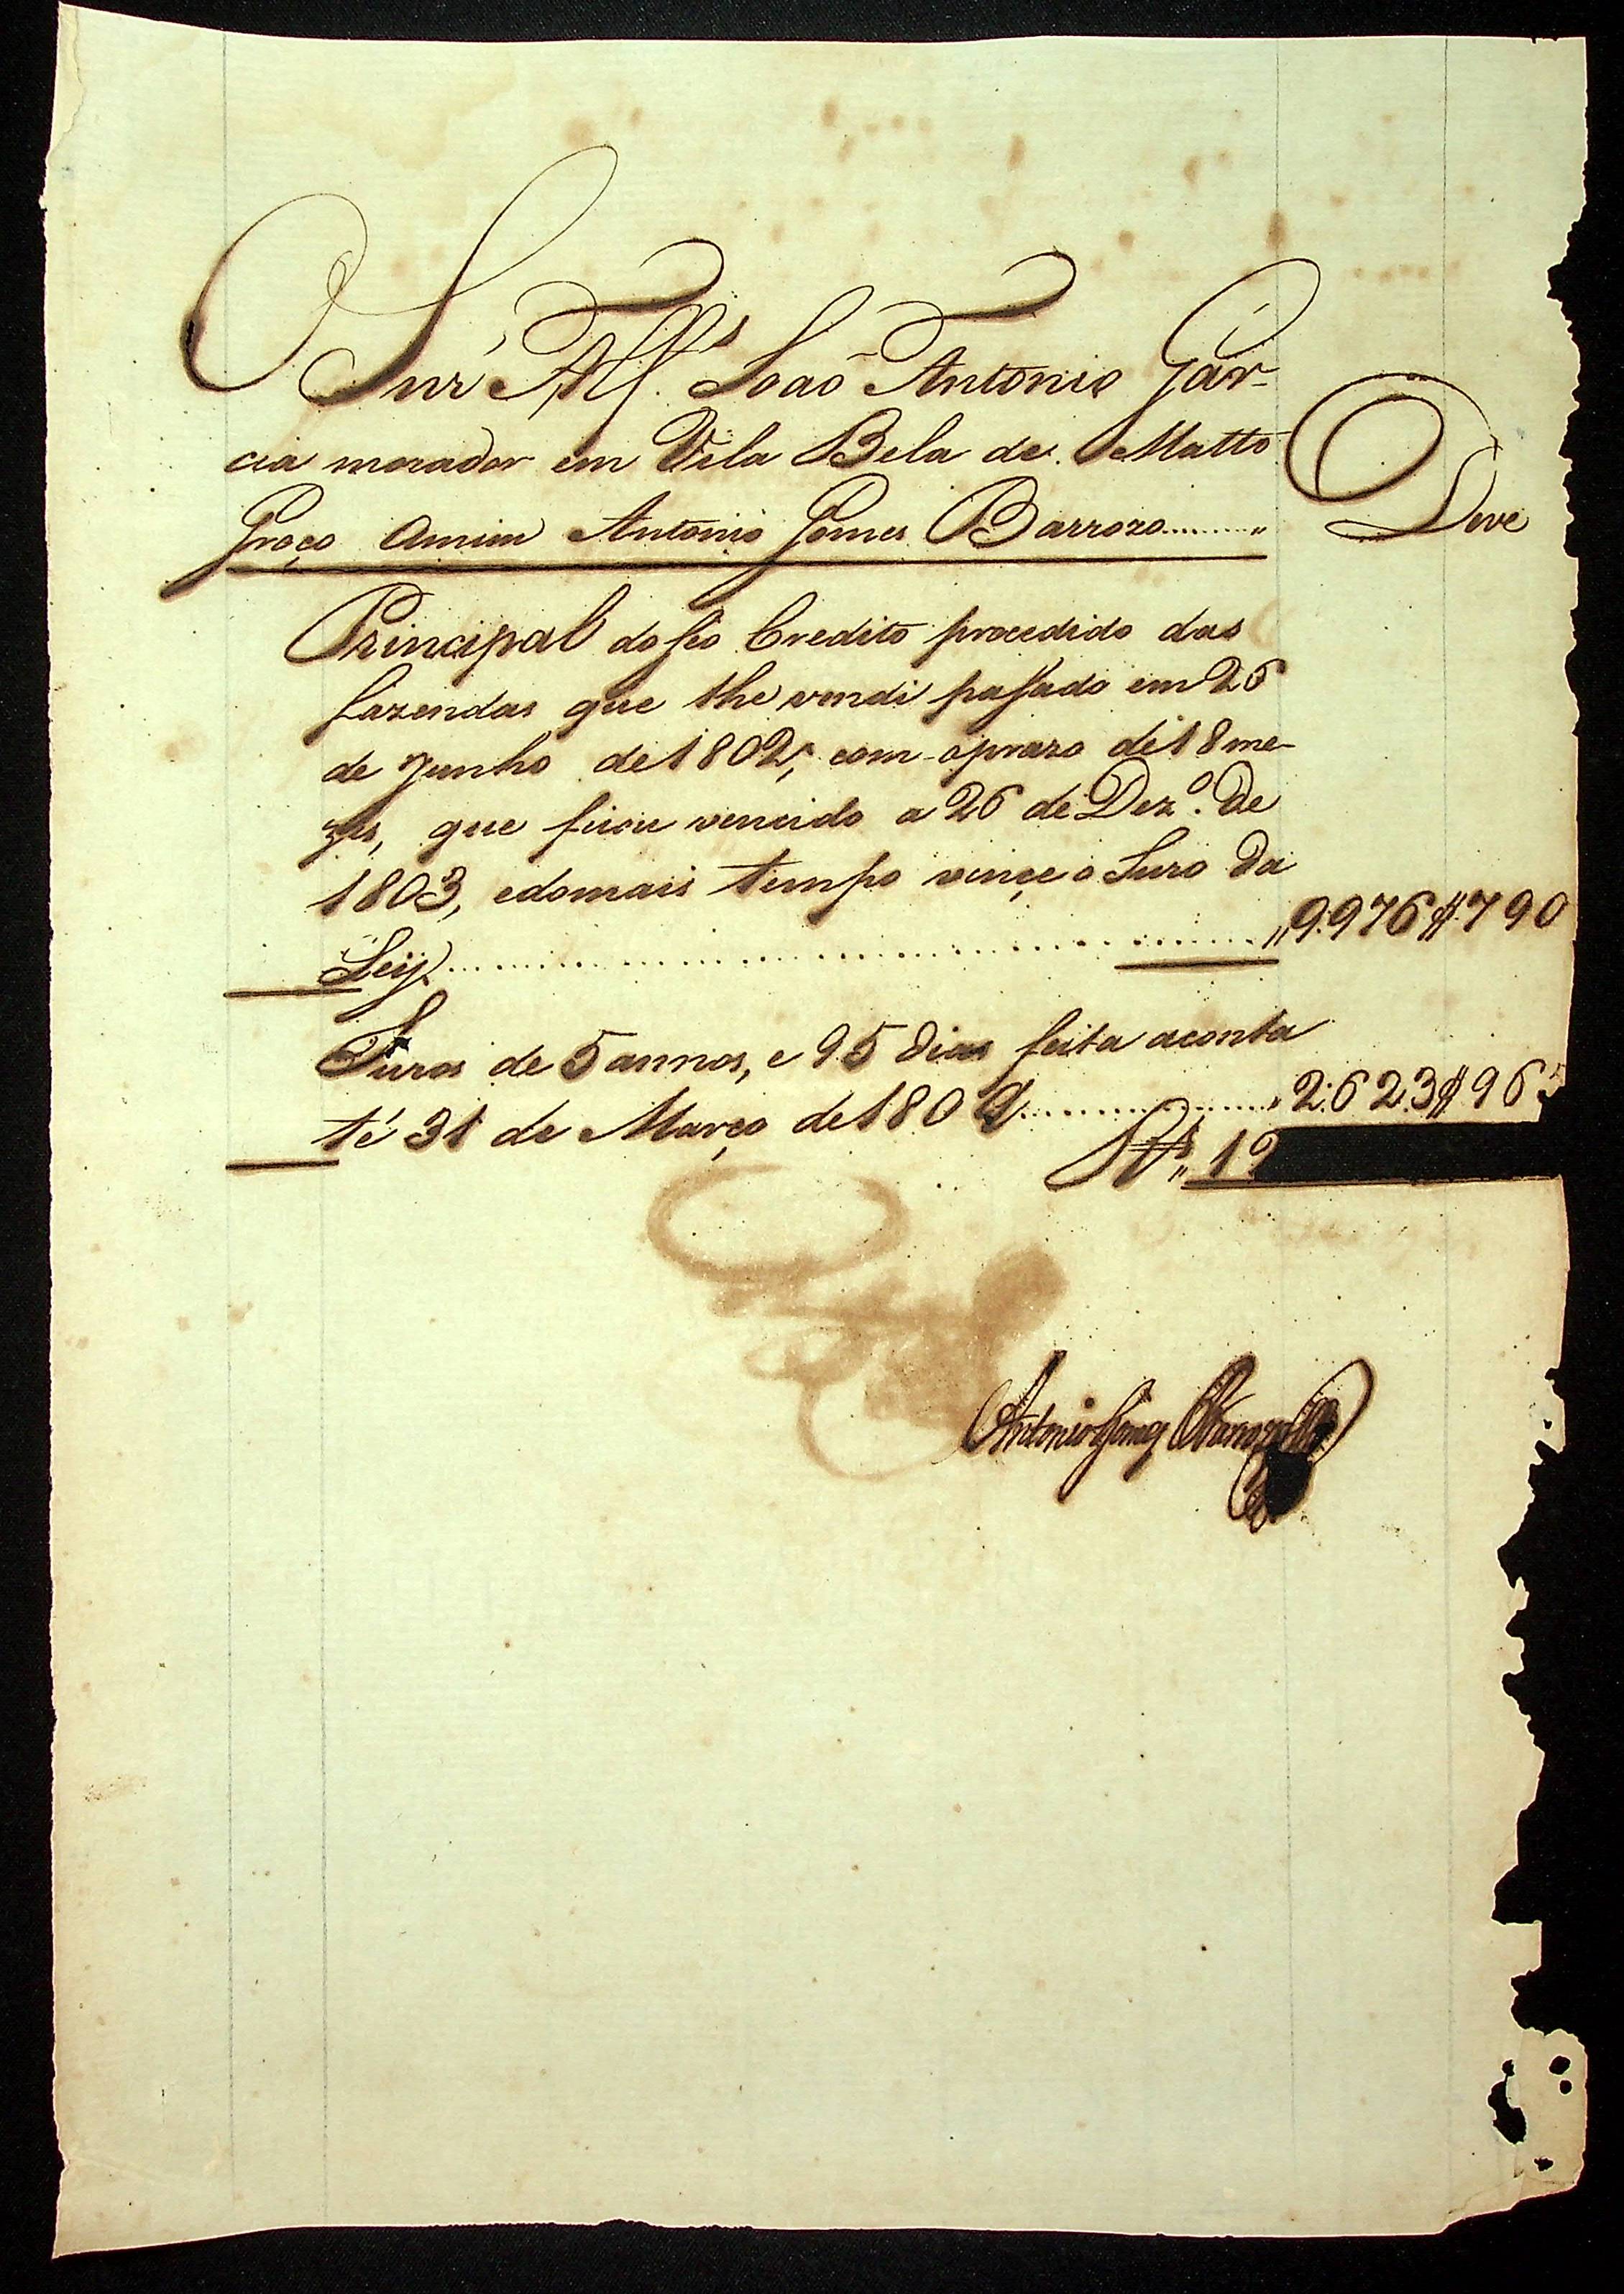 O Snr Alfs. João Antonio Gar-
cia morador em Vila Bela de Matto
Groço Amim Antonio Gomes Barrozo.......... Deve
Principal do seo Credito procedido das
fazendas que lhe vendi passado em 26
de Junho de 1802, com o prazo de 18 me-
zes, que ficou vencido a 26 de Dezo. de
1803, edomais tempo vençe o Juro da
Leij.......... 9.976$790
Juros de 5 annos, e 95 dias feita aconta
té 31 de Março de 1809.......... 2.623$96
Rs. 12
Antonio Gomes Barrozo